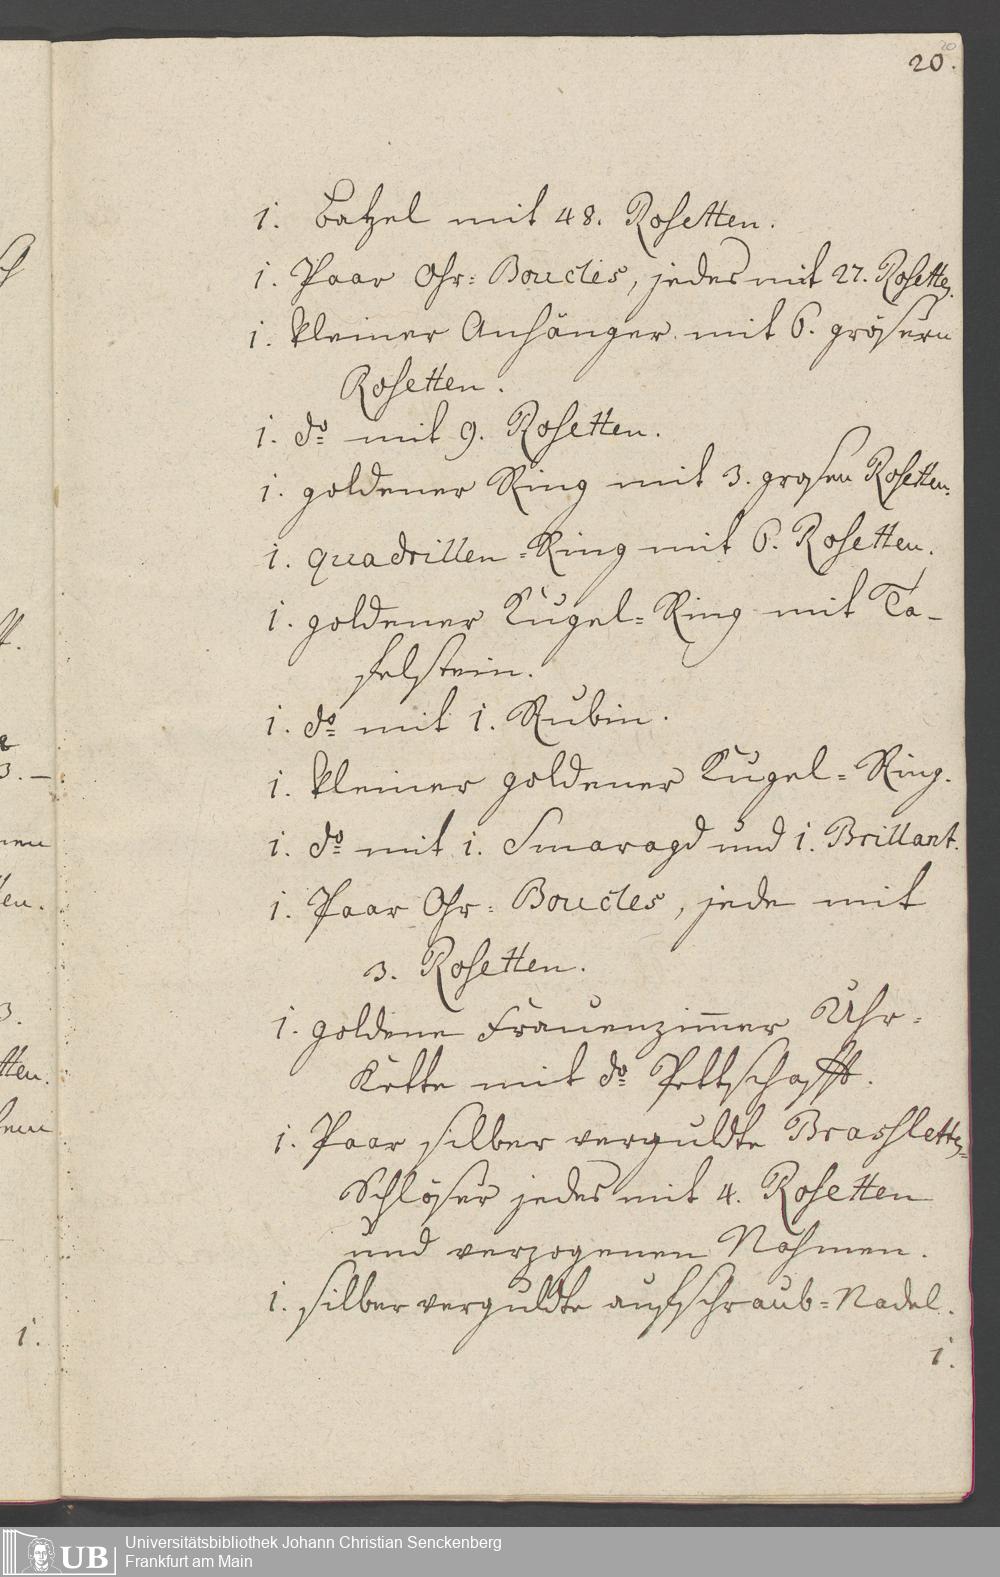 20
20.
1. Batzel mit 48. Rosetten.
1. Paar Ohr: Boucles, jedes mit 27. Rosetten.
1. kleiner Anhänger mit 6. grösern
Rosetten.
1. do mit 9. Rosetten.
1. goldener Ring mit 3. grosen Rosetten.
1. quadrillen=Ring mit 6. Rosetten.
1. goldener Kugel=Ring mit Ta-
felstein.
1. do mit 1. Rubin.
1. kleiner goldener Kugel=Ring.
1. do mit 1. Smaragd und 1. Brillant.
1. Paar Ohr=Boucles, jede mit
3. Rosetten.
1. goldene Frauenzimmer Uhr=
Kette mit do Pettschafft.
1. Paar silber verguldte Brasletten=
Schlöser jedes mit 4. Rosetten
und verzogenen Nahmen.
1. silber verguldte aufschraub=Nadel.
1.
1.
UB
Universitätsbibliothek Johann Christian Senckenberg
Frankfurt am Main